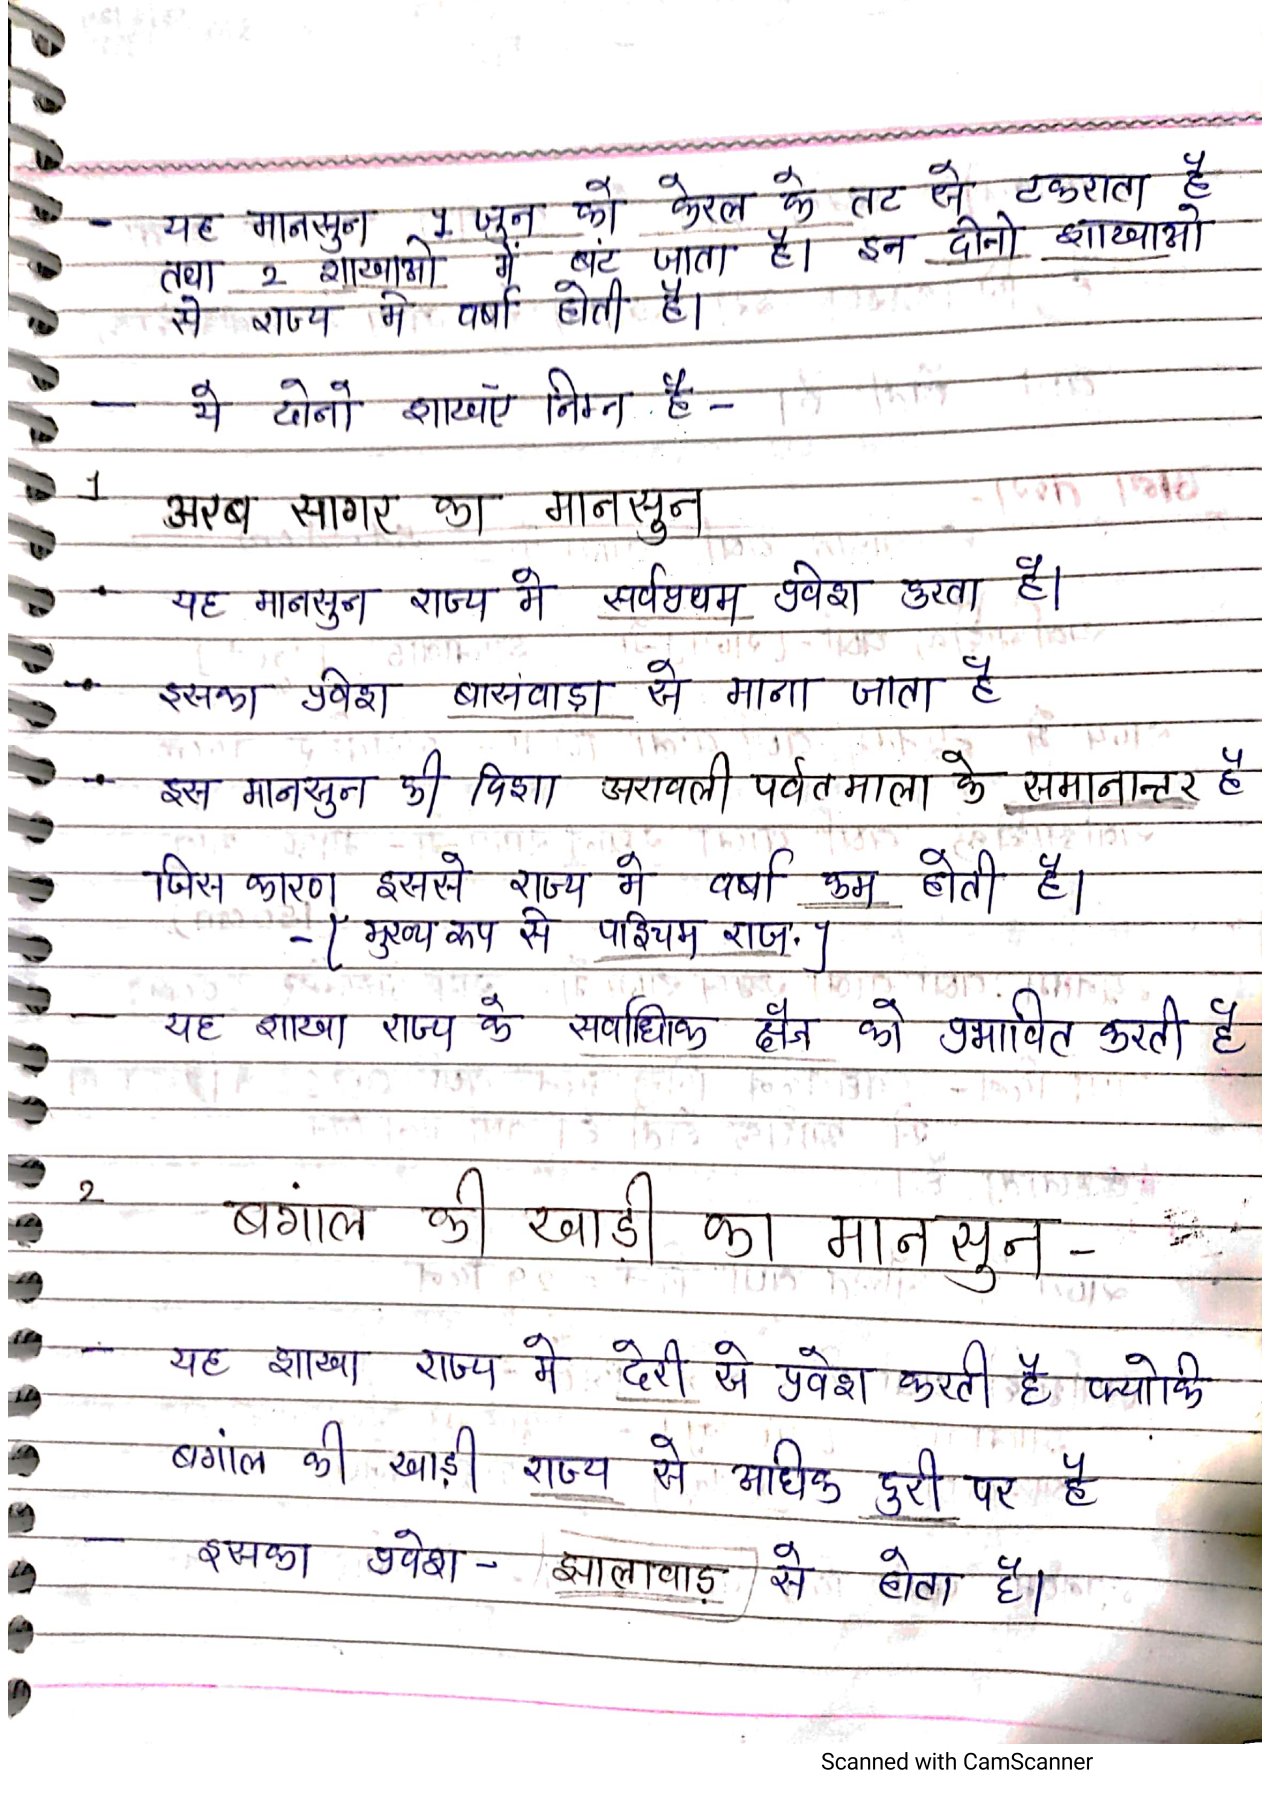 - यह मानसुन 1 जून को केरल के तट से टकराता है
तथा 2 शाखाओ में बंट जाता है। इन दोनो शाखाओ
से राज्य मे वर्षा होती है।
- ये दोनो शाखाएँ निम्न है -
1 अरब सागर का मानसुन
- यह मानसुन राज्य मे सर्वप्रथम प्रवेश करता है।
- इसका प्रवेश बासंवाड़ा से माना जाता है
- इस मानसुन की दिशा अरावली पर्वतमाला के समानान्तर है
जिस कारण इससे राज्य मे वर्षा कम होती है।
- { मुख्य रूप से पश्चिम राज. }
- यह शाखा राज्य के सर्वाधिक क्षेत्र को प्रभावित करती है
2 बगांल की खाड़ी का मानसुन -
- यह शाखा राज्य मे देरी से प्रवेश करती है क्योकि
बगांल की खाड़ी राज्य से अधिक दुरी पर है
- इसका प्रवेश - झालावाड़ से होता है।
Scanned with CamScanner